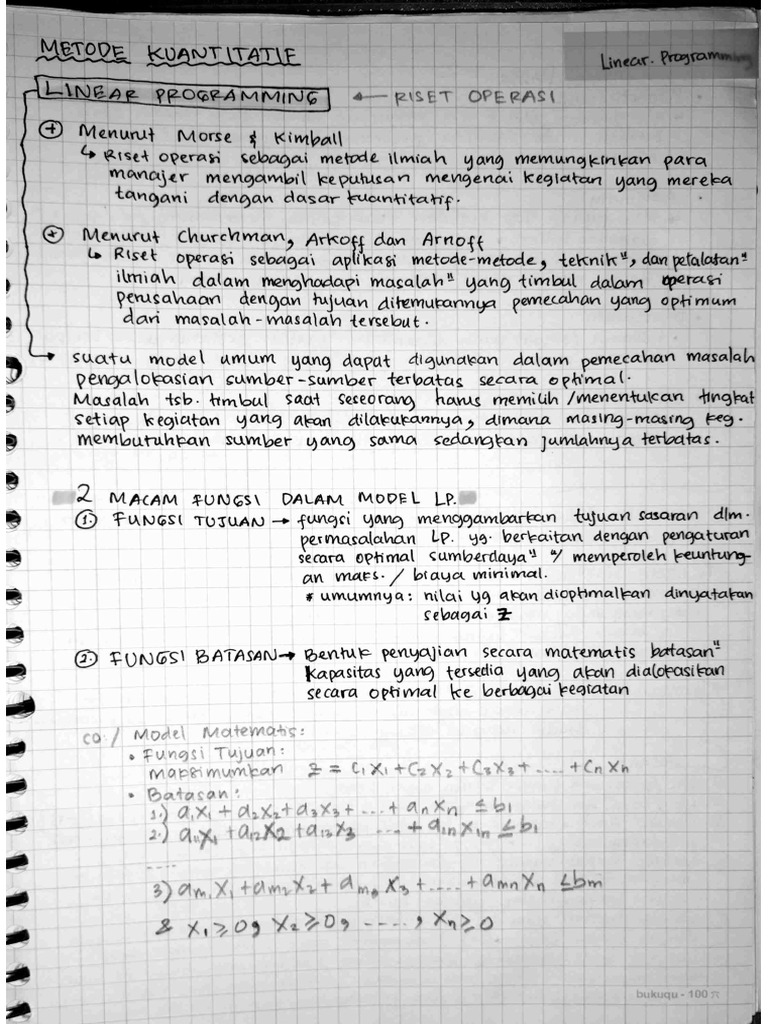 METODE KUANTITATIF
Linear. Programming
LINEAR PROGRAMMING ← RISET OPERASI
+ Menurut Morse & Kimball
↳ Riset operasi sebagai metode ilmiah yang memungkinkan para
manajer mengambil keputusan mengenai kegiatan yang mereka
tangani dengan dasar kuantitatif.
+ Menurut Churchman, Arkoff dan Arnoff
↳ Riset operasi sebagai aplikasi metode-metode, teknik", dan petalatan"
ilmiah dalam menghadapi masalah" yang timbul dalam operasi
perusahaan dengan tujuan ditemukannya pemecahan yang optimum
dari masalah-masalah tersebut.
→ suatu model umum yang dapat digunakan dalam pemecahan masalah
pengalokasian sumber-sumber terbatas secara optimal.
Masalah tsb. timbul saat seseorang harus memilih/menentukan tingkat
setiap kegiatan yang akan dilakukannya, dimana masing-masing keg.
membutuhkan sumber yang sama sedangkan jumlahnya terbatas.
2 MACAM FUNGSI DALAM MODEL LP.
1. FUNGSI TUJUAN → fungsi yang menggambarkan tujuan sasaran dlm.
permasalahan LP. yg. berkaitan dengan pengaturan
secara optimal sumberdaya" u/ memperoleh keuntung-
an maks. / biaya minimal.
* umumnya: nilai yg akan dioptimalkan dinyatakan
sebagai Z
2. FUNGSI BATASAN → Bentuk penyajian secara matematis batasan"
kapasitas yang tersedia yang akan dialokasikan
secara optimal ke berbagai kegiatan
co:/ Model Matematis:
• Fungsi Tujuan:
Maksimumkan Z = C₁X₁+C₂X₂+C₃X₃+.....+CnXn
• Batasan:
1.) a₁X₁+a₂X₂+a₃X₃+....+anXn ≤b₁
2.) a₁₁X₁+a₁₂X₂+a₁₃X₃ ....+a₁nX₁n≤b₁
....
3) am₁X₁+am₂X₂+am₃X₃+.....+amnXn ≤bm
& X₁≥0, X₂≥0, ....., Xn≥0
bukuqu - 100 ☆